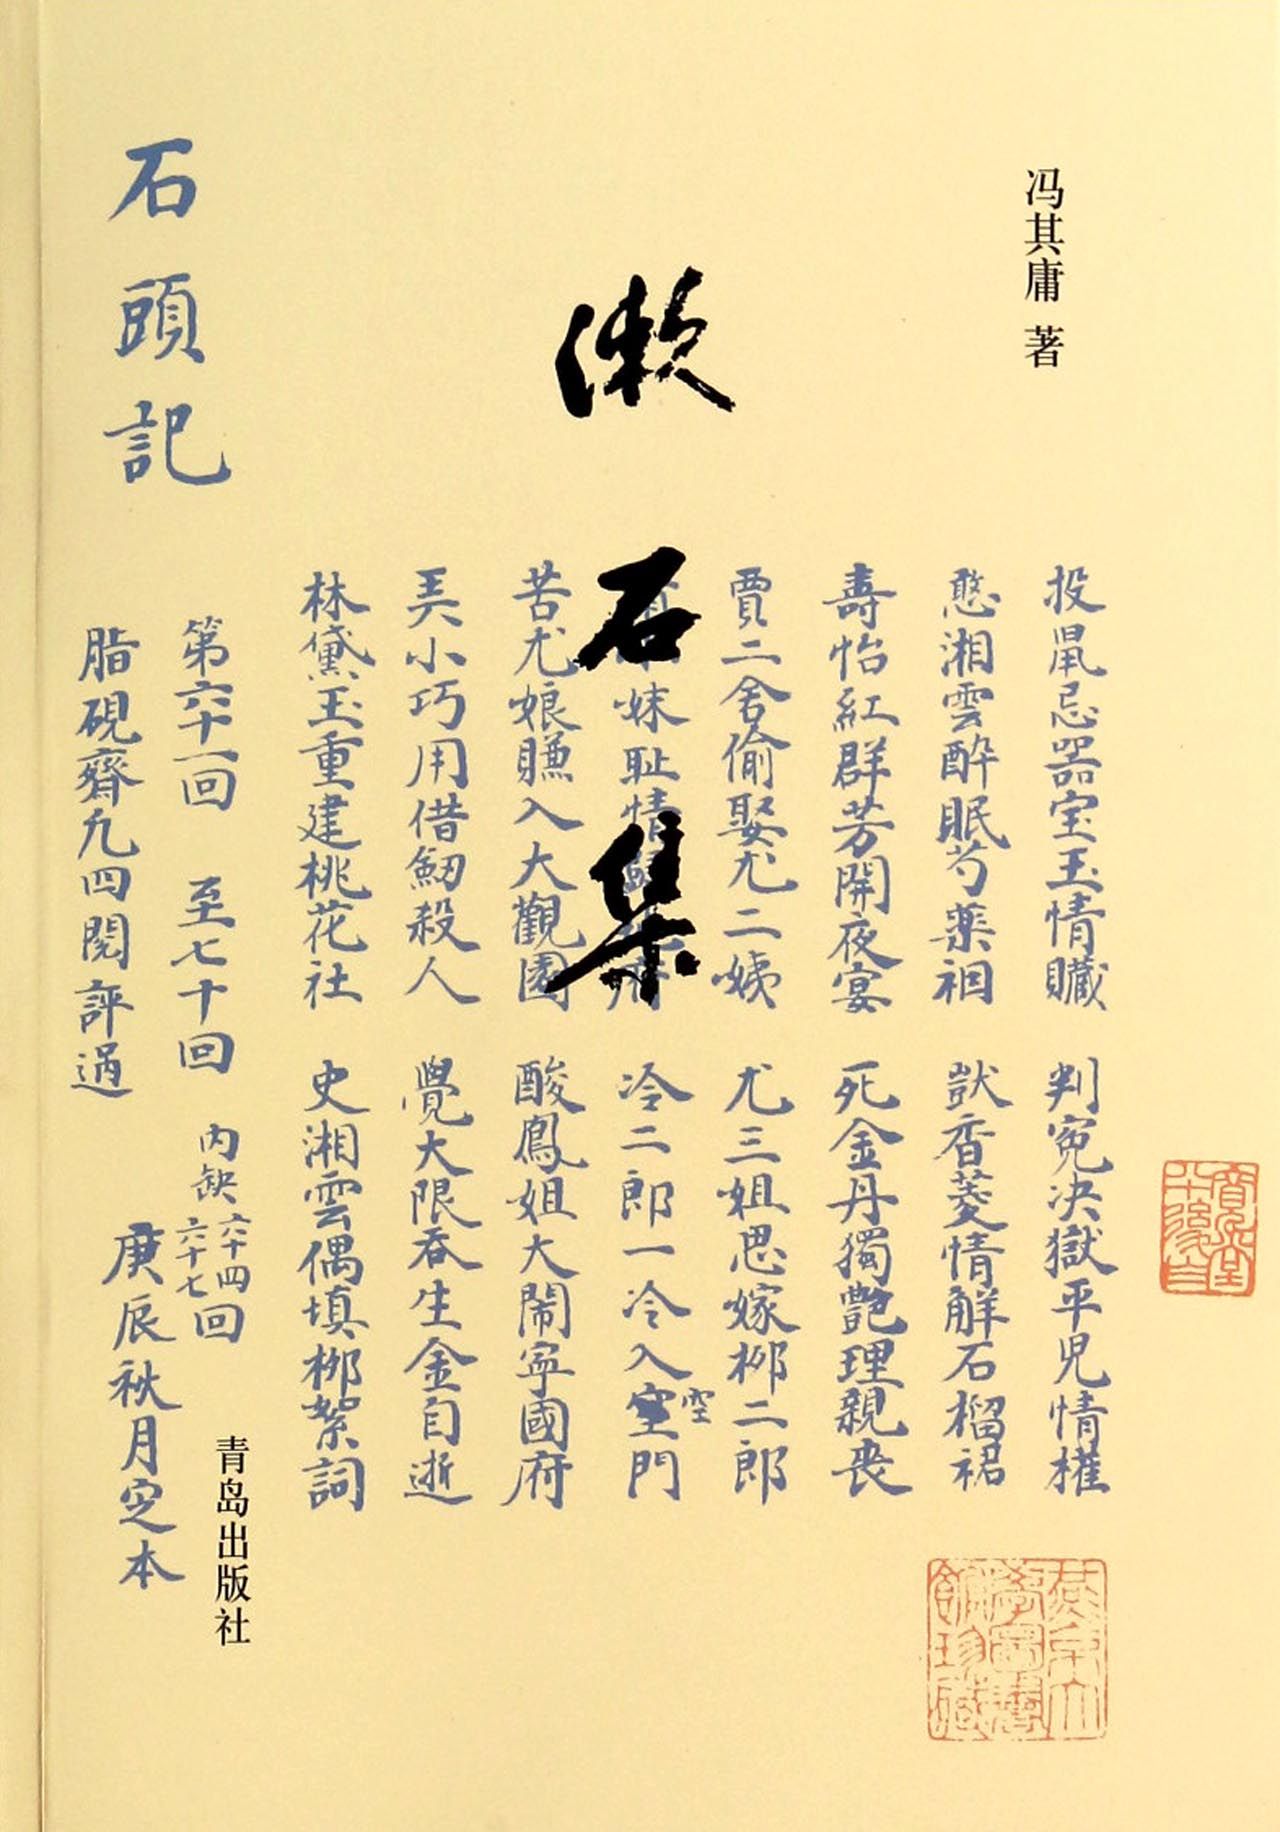 冯其庸 著
漱石集
投鼠忌器宝玉情贓 判冤决獄平児情權
憨湘雲酔眠芍薬裀 獃香菱情解石榴裙
壽怡紅群芳開夜宴 死金丹獨艶理親喪
賈二舍偷娶尤二姨 尤三姐思嫁柳二郎
妹耻情 冷二郎一冷入空門
空
苦尤娘賺入大觀園 酸鳳姐大鬧寧國府
美小巧用借劒殺人 覺大限吞生金自逝
林黛玉重建桃花社 史湘雲偶填柳絮詞
石頭記
第六十一回 至七十回 内缺六十四六十七回
脂硯齋凡四閱評過
庚辰秋月定本
青岛出版社